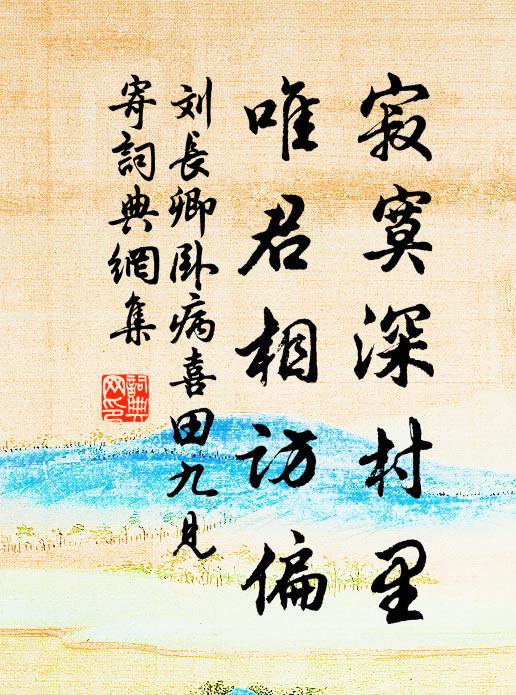 寂寞深村里
唯君相访偏
刘長卿卧病喜田九見
寄詞典網集
詞典
网印